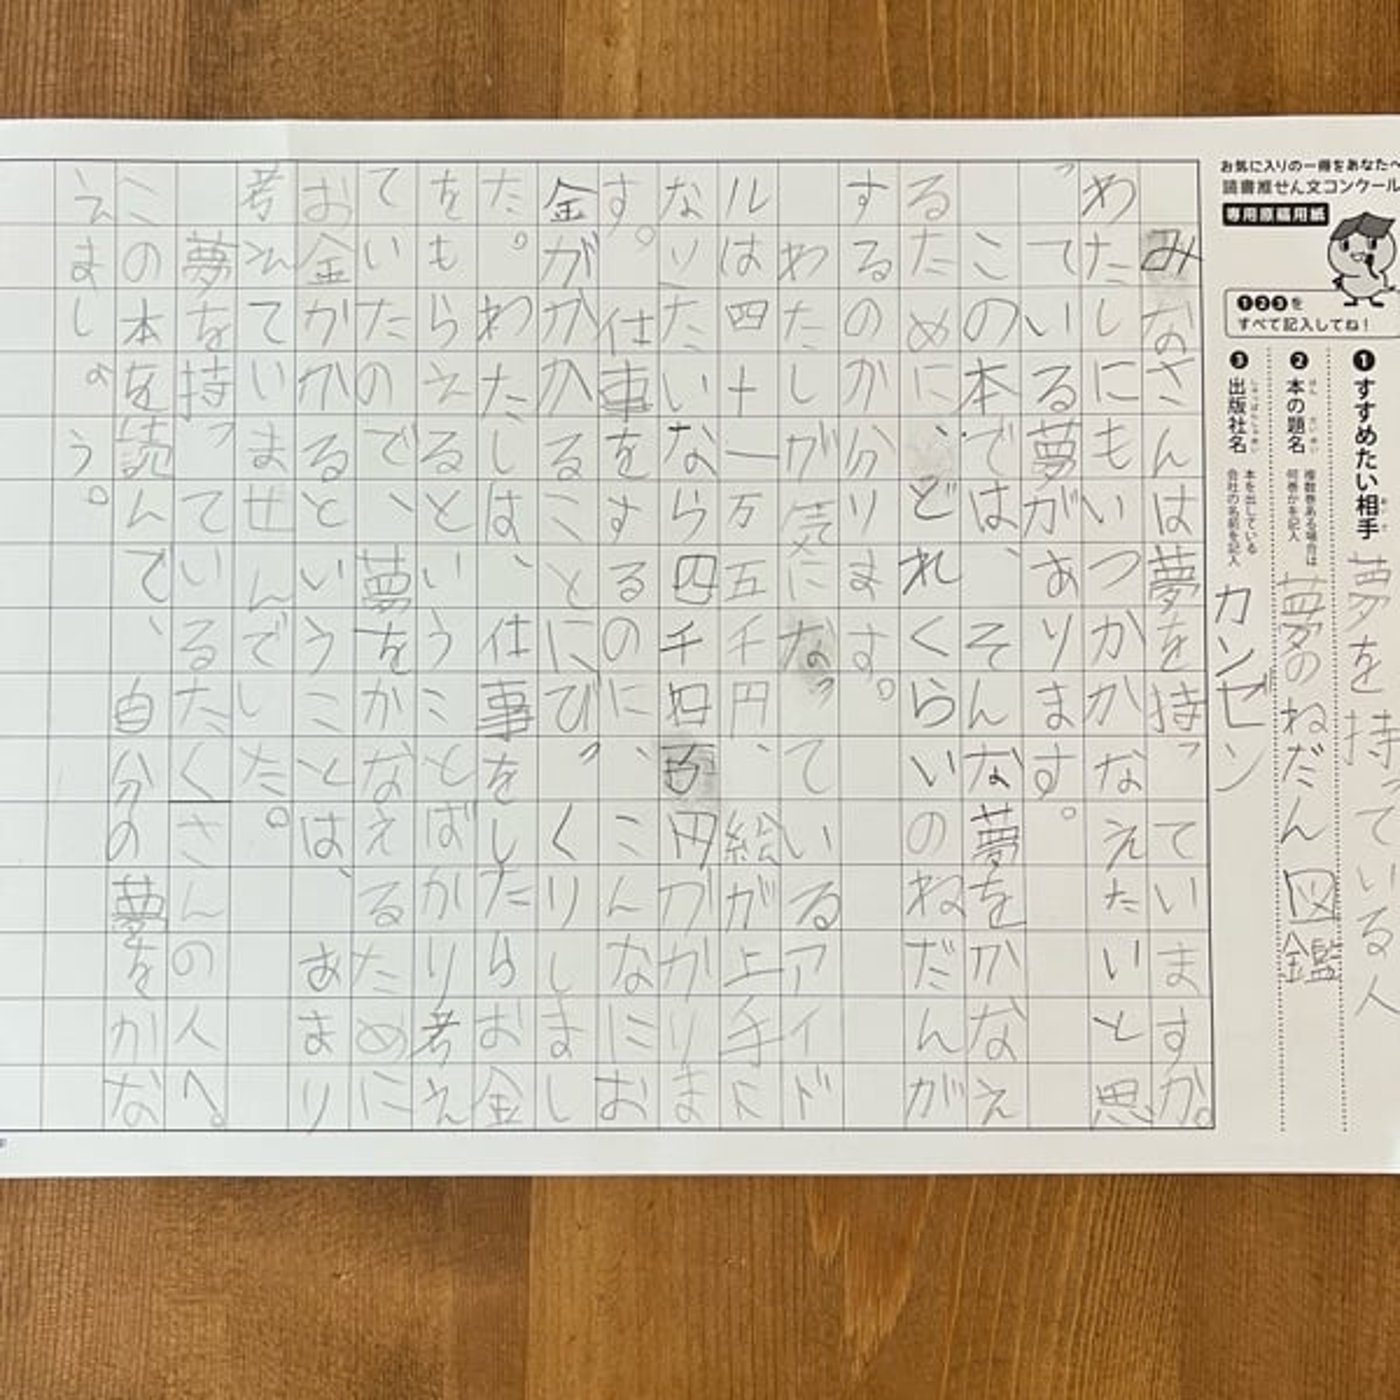 お気に入りの一冊をあなたへ
読書推せん文コンクール
専用原稿用紙
❶❷❸を
すべて記入してね！
❶ すすめたい相手 夢を持っている人
❷ 本の題名 複数巻ある場合は何巻かを記入 夢のねだん図鑑
❸ 出版社名 本を出している会社の名前を記入 カンゼン
みなさんは夢を持っていますか。
わたしにもいつかかなえたいと思
っている夢があります。
この本では、そんな夢をかなえ
るために、どれくらいのねだんが
するのか分ります。
わたしが気になっているアイド
ルは四十一万五千円、絵が上手に
なりたいなら四千四百円がかりま
す。仕事をするのに、こんなにお
金がかかることにびっくりしまし
た。わたしは、仕事をしたらお金
をもらえるということばかり考え
ていたので、夢をかなえるために
お金がかかるということは、あまり
考えていませんでした。
夢を持っているたくさんの人へ。
この本を読んで、自分の夢をかな
えましょう。